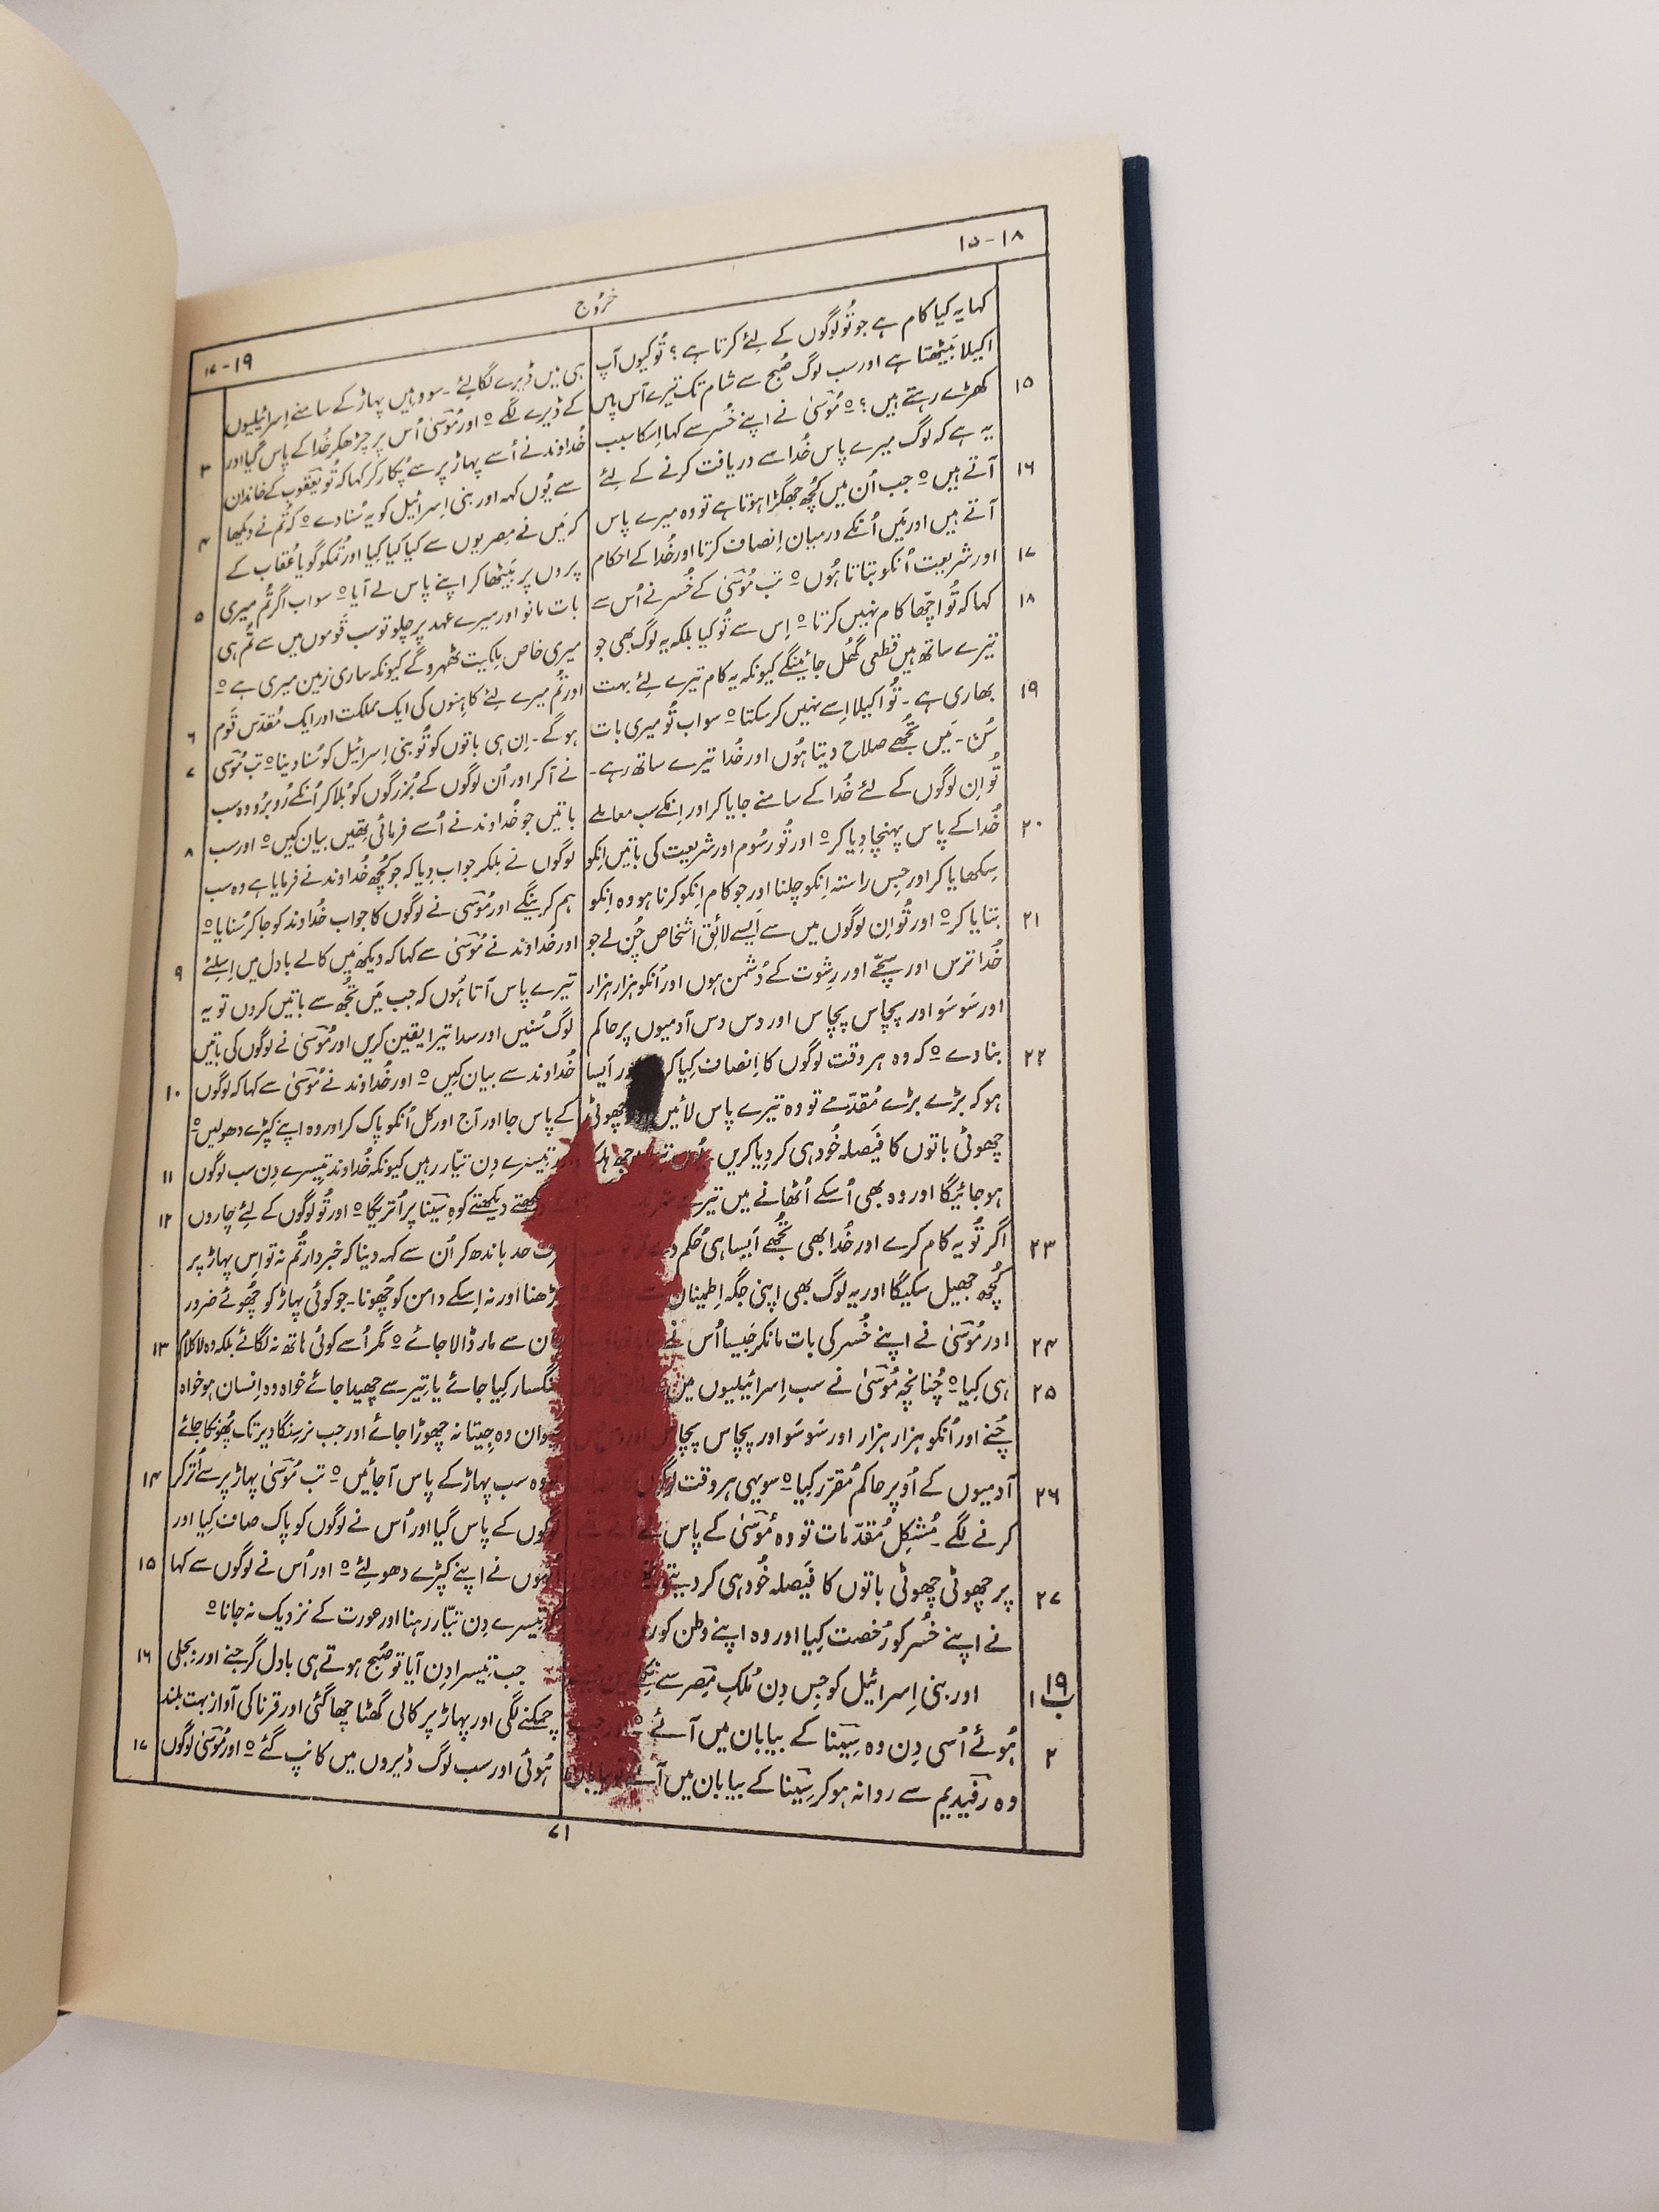 ۱۸-۱۵
خرُوج
۱۹-۱۷
کہا یہ کیا کام ہے جو تُو لوگوں کے لِئے کرتا ہے؟ تُو کیوں آپ
اکیلا بَیٹھتا ہے اور سب لوگ صُبح سے شام تک تیرے آس پاس
۱۵ کھڑے رہتے ہیں؟ ۝ مُوسیٰ نے اپنے خُسر سے کہا اِسکا سبب
یہ ہے کہ لوگ میرے پاس خُدا سے دریافت کرنے کے لِئے
۱۶ آتے ہیں ۝ جب اُن میں کُچھ جھگڑا ہوتا ہے تو وہ میرے پاس
آتے ہیں اور مَیں اُنکے درمیان اِنصاف کرتا اور خُدا کے احکام
۱۷ اور شرِیعت اُنکو بتاتا ہُوں ۝ تب مُوسیٰ کے خُسر نے اُس سے
۱۸ کہا کہ تُو اچّھا کام نہیں کرتا ۝ اِس سے تُو کیا بلکہ یہ لوگ بھی جو
تیرے ساتھ ہیں قطعی گُھل جائینگے کیونکہ یہ کام تیرے لِئے بہت
۱۹ بھاری ہے۔ تُو اکیلا اِسے نہیں کر سکتا ۝ سو اب تُو میری بات
سُن۔ مَیں تُجھے صلاح دیتا ہُوں اور خُدا تیرے ساتھ رہے۔
تُو اِن لوگوں کے لِئے خُدا کے سامنے جایا کر اور اِنکے سب معاملے
۲۰ خُدا کے پاس پہنچا دِیا کر ۝ اور تُو رسُوم اور شرِیعت کی باتیں اِنکو
سِکھایا کر اور جِس راستہ اِنکو چلنا اور جو کام اِنکو کرنا ہو وہ اِنکو
۲۱ بتایا کر ۝ اور تُو اِن لوگوں میں سے اَیسے لائِق اشخاص چُن لے جو
خُدا ترس اور سچّے اور رِشوت کے دُشمن ہوں اور اُنکو ہزار ہزار
اور سَو سَو اور پچاس پچاس اور دس دس آدمیوں پر حاکم
۲۲ بنا دے ۝ کہ وہ ہر وقت لوگوں کا اِنصاف کِیا کریں اور اَیسا
ہو کہ بڑے بڑے مُقدّمے تو وہ تیرے پاس لائیں چھوٹی
چھوٹی باتوں کا فَیصلہ خُود ہی کر دِیا کریں۔ یُوں
ہو جائیگا اور وہ بھی اُسکے اُٹھانے میں تیرے
۲۳ اگر تُو یہ کام کرے اور خُدا بھی تُجھے اَیسا ہی حُکم دے تو تُو سب
کُچھ جھیل سکیگا اور یہ لوگ بھی اپنی جگہ اِطمینان سے
۲۴ اور مُوسیٰ نے اپنے خُسر کی بات مانکر جَیسا اُس نے
۲۵ ہی کِیا ۝ چُنانچہ مُوسیٰ نے سب اِسرائیلیوں میں
چُنے اور اُنکو ہزار ہزار اور سَو سَو اور پچاس پچاس اور دس دس
۲۶ آدمیوں کے اُوپر حاکم مُقرّر کِیا ۝ سو یہی ہر وقت لوگوں کا
کرنے لگے۔ مُشکِل مُقدّمات تو وہ مُوسیٰ کے پاس لے آتے تھے
۲۷ پر چھوٹی چھوٹی باتوں کا فَیصلہ خُود ہی کر دیتے تھے
نے اپنے خُسر کو رُخصت کِیا اور وہ اپنے وطن کو
باب ۱۹ ۱ اور بنی اِسرائیل کو جِس دِن مُلکِ مِصر سے
۲ ہُوئے اُسی دِن وہ سِینا کے بیابان میں آئے ۝ اور جب
وہ رفِیدیم سے روانہ ہو کر سِینا کے بیابان میں آئے تو بیابان
ہی میں ڈیرے لگا لِئے۔ سو وہیں پہاڑ کے سامنے اِسرائیلیوں
۳ کے ڈیرے لگے ۝ اور مُوسیٰ اُس پر چڑھکر خُدا کے پاس گیا اور
خُداوند نے اُسے پہاڑ پر سے پُکار کر کہا کہ تُو یعقُوب کے خاندان
۴ سے یُوں کہہ اور بنی اِسرائیل کو یہ سُنا دے ۝ کہ تُم نے دیکھا
کہ مَیں نے مِصریوں سے کیا کیا کِیا اور تُمکو گویا عُقاب کے
۵ پروں پر بَیٹھا کر اپنے پاس لے آیا ۝ سو اب اگر تُم میری
بات مانو اور میرے عہد پر چلو تو سب قَوموں میں سے تُم ہی
میری خاص مِلکِیت ٹھہرو گے کیونکہ ساری زمِین میری ہے ۝
۶ اور تُم میرے لِئے کاہِنوں کی ایک مملکت اور ایک مُقدّس قَوم
۷ ہو گے۔ اِن ہی باتوں کو تُو بنی اِسرائیل کو سُنا دینا ۝ تب مُوسیٰ
نے آ کر اور اُن لوگوں کے بُزرگوں کو بُلا کر اُنکے رُوبرُو وہ سب
۸ باتیں جو خُداوند نے اُسے فرمائی تھیں بیان کِیں ۝ اور سب
لوگوں نے مِلکر جواب دِیا کہ جو کُچھ خُداوند نے فرمایا ہے وہ سب
ہم کرینگے اور مُوسیٰ نے لوگوں کا جواب خُداوند کو جا کر سُنایا ۝
۹ اور خُداوند نے مُوسیٰ سے کہا کہ دیکھ مَیں کالے بادل میں اِسلِئے
تیرے پاس آتا ہُوں کہ جب مَیں تُجھ سے باتیں کروں تو یہ
لوگ سُنیں اور سدا تیرا یقین کریں اور مُوسیٰ نے لوگوں کی باتیں
۱۰ خُداوند سے بیان کِیں ۝ اور خُداوند نے مُوسیٰ سے کہا کہ لوگوں
کے پاس جا اور آج اور کل اُنکو پاک کر اور وہ اپنے کپڑے دھو لیں ۝
۱۱ اور تیسرے دِن تیّار رہیں کیونکہ خُداوند تیسرے دِن سب لوگوں
۱۲ کے دیکھتے دیکھتے کوہِ سِینا پر اُتریگا ۝ اور تُو لوگوں کے لِئے چاروں
طرف حد باندھ کر اُن سے کہہ دینا کہ خبردار تُم نہ تو اِس پہاڑ پر
چڑھنا اور نہ اِسکے دامن کو چُھونا۔ جو کوئی پہاڑ کو چُھوئے ضرور
۱۳ جان سے مار ڈالا جائے ۝ مگر اُسے کوئی ہاتھ نہ لگائے بلکہ وہ لاکلام
سنگسار کِیا جائے یا تِیر سے چھیدا جائے خواہ وہ اِنسان ہو خواہ
حَیوان وہ جِیتا نہ چھوڑا جائے اور جب نرسِنگا دیر تک پُھونکا جائے
۱۴ تو وہ سب پہاڑ کے پاس آ جائیں ۝ تب مُوسیٰ پہاڑ پر سے اُتر کر
لوگوں کے پاس گیا اور اُس نے لوگوں کو پاک صاف کِیا اور
۱۵ اُنہوں نے اپنے کپڑے دھو لِئے ۝ اور اُس نے لوگوں سے کہا
کہ تیسرے دِن تیّار رہنا اور عورت کے نزدِیک نہ جانا ۝
۱۶ جب تیسرا دِن آیا تو صُبح ہوتے ہی بادل گرجنے اور بِجلی
چمکنے لگی اور پہاڑ پر کالی گھٹا چھا گئی اور قرنا کی آواز بہت بلند
۱۷ ہُوئی اور سب لوگ ڈیروں میں کانپ گئے ۝ اور مُوسیٰ لوگوں
۷۱